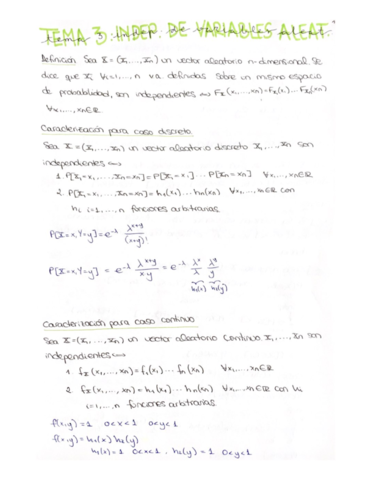 TEMA 3. INDEP. DE VARIABLES ALEAT.
Definición Sea X=(x₁,...,xₙ) un vector aleatorio n-dimensional. Se
dice que Xᵢ ∀i=1,...,n v.a. definidas sobre un mismo espacio
de probabilidad, son independientes ⟺ F_X(x₁,...,xₙ)=F₁(x₁)...Fₙ(xₙ)
∀x₁,...,xₙ∈ℝ
Caracterización para caso discreto
Sea X=(x₁,...,xₙ) un vector aleatorio discreto x₁,...,xₙ son
independientes ⟺
1. P[X₁=x₁,...,Xₙ=xₙ]=P[X₁=x₁]...P[Xₙ=xₙ] ∀x₁,...,xₙ∈ℝ
2. P[X₁=x₁,...,Xₙ=xₙ]=h₁(x₁)...hₙ(xₙ) ∀x₁,...,xₙ∈ℝ con
hᵢ i=1,...,n funciones arbitrarias.
P[X=x,Y=y]=e^-λ λ^(x+y)/(x+y)!
P[X=x,Y=y] = e^-λ λ^(x+y)/x·y = e^-λ λ^x/λ λ^y/y
h₁(x) h₂(y)
Caracterización para caso continuo
Sea X=(x₁,...,xₙ) un vector aleatorio continuo x₁,...,xₙ son
independientes ⟺
1. f_X(x₁,...,xₙ)=f₁(x₁)...fₙ(xₙ) ∀x₁,...,xₙ∈ℝ
2. f_X(x₁,...,xₙ)=h₁(x₁)...hₙ(xₙ) ∀x₁,...,xₙ∈ℝ con hᵢ
i=1,...,n funciones arbitrarias.
f(x,y)=1 0<x<1 0<y<1
f(x,y)=h₁(x)h₂(y)
h₁(x)=1 0<x<1, h₂(y)=1 0<y<1